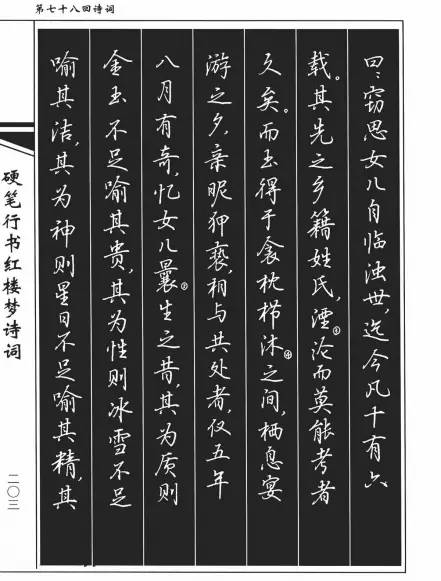 第七十八回诗词
曰：窃思女儿自临浊世，迄今凡十有六
载。其先之乡籍姓氏，湮③沦而莫能考者
久矣。而玉得于衾枕栉沐④之间，栖息宴
游之夕，亲昵狎亵，相与共处者，仅五年
八月有奇，忆女儿曩②生之昔，其为质则
金玉不足喻其贵，其为性则冰雪不足
喻其洁，其为神则星日不足喻其精，其
硬笔行书红楼梦诗词
二〇三